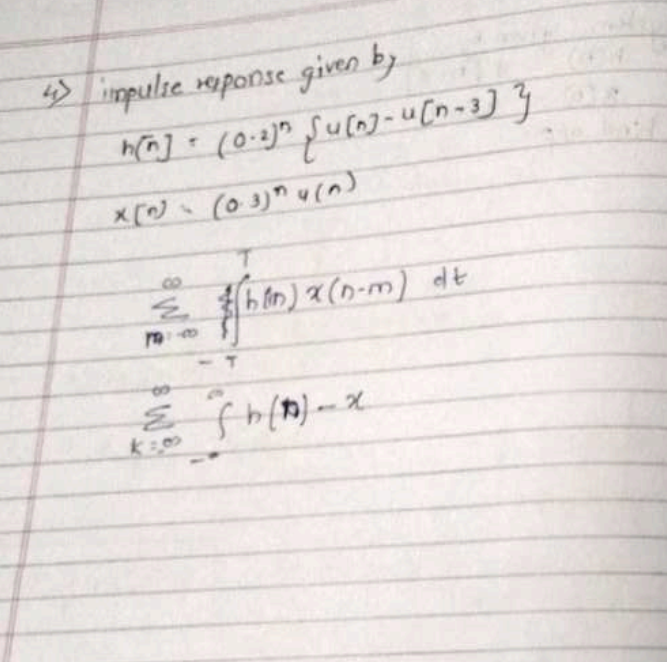 4) impulse response given by
h[n] = (0.2)ⁿ {u[n]-u[n-3]}
x[n] = (0.3)ⁿ u(n)
∞ T
Σ ∫ h(m) x(n-m) dt
m=-∞ -T
∞ ∞
Σ ∫ h(n) - x
k=-∞ -∞